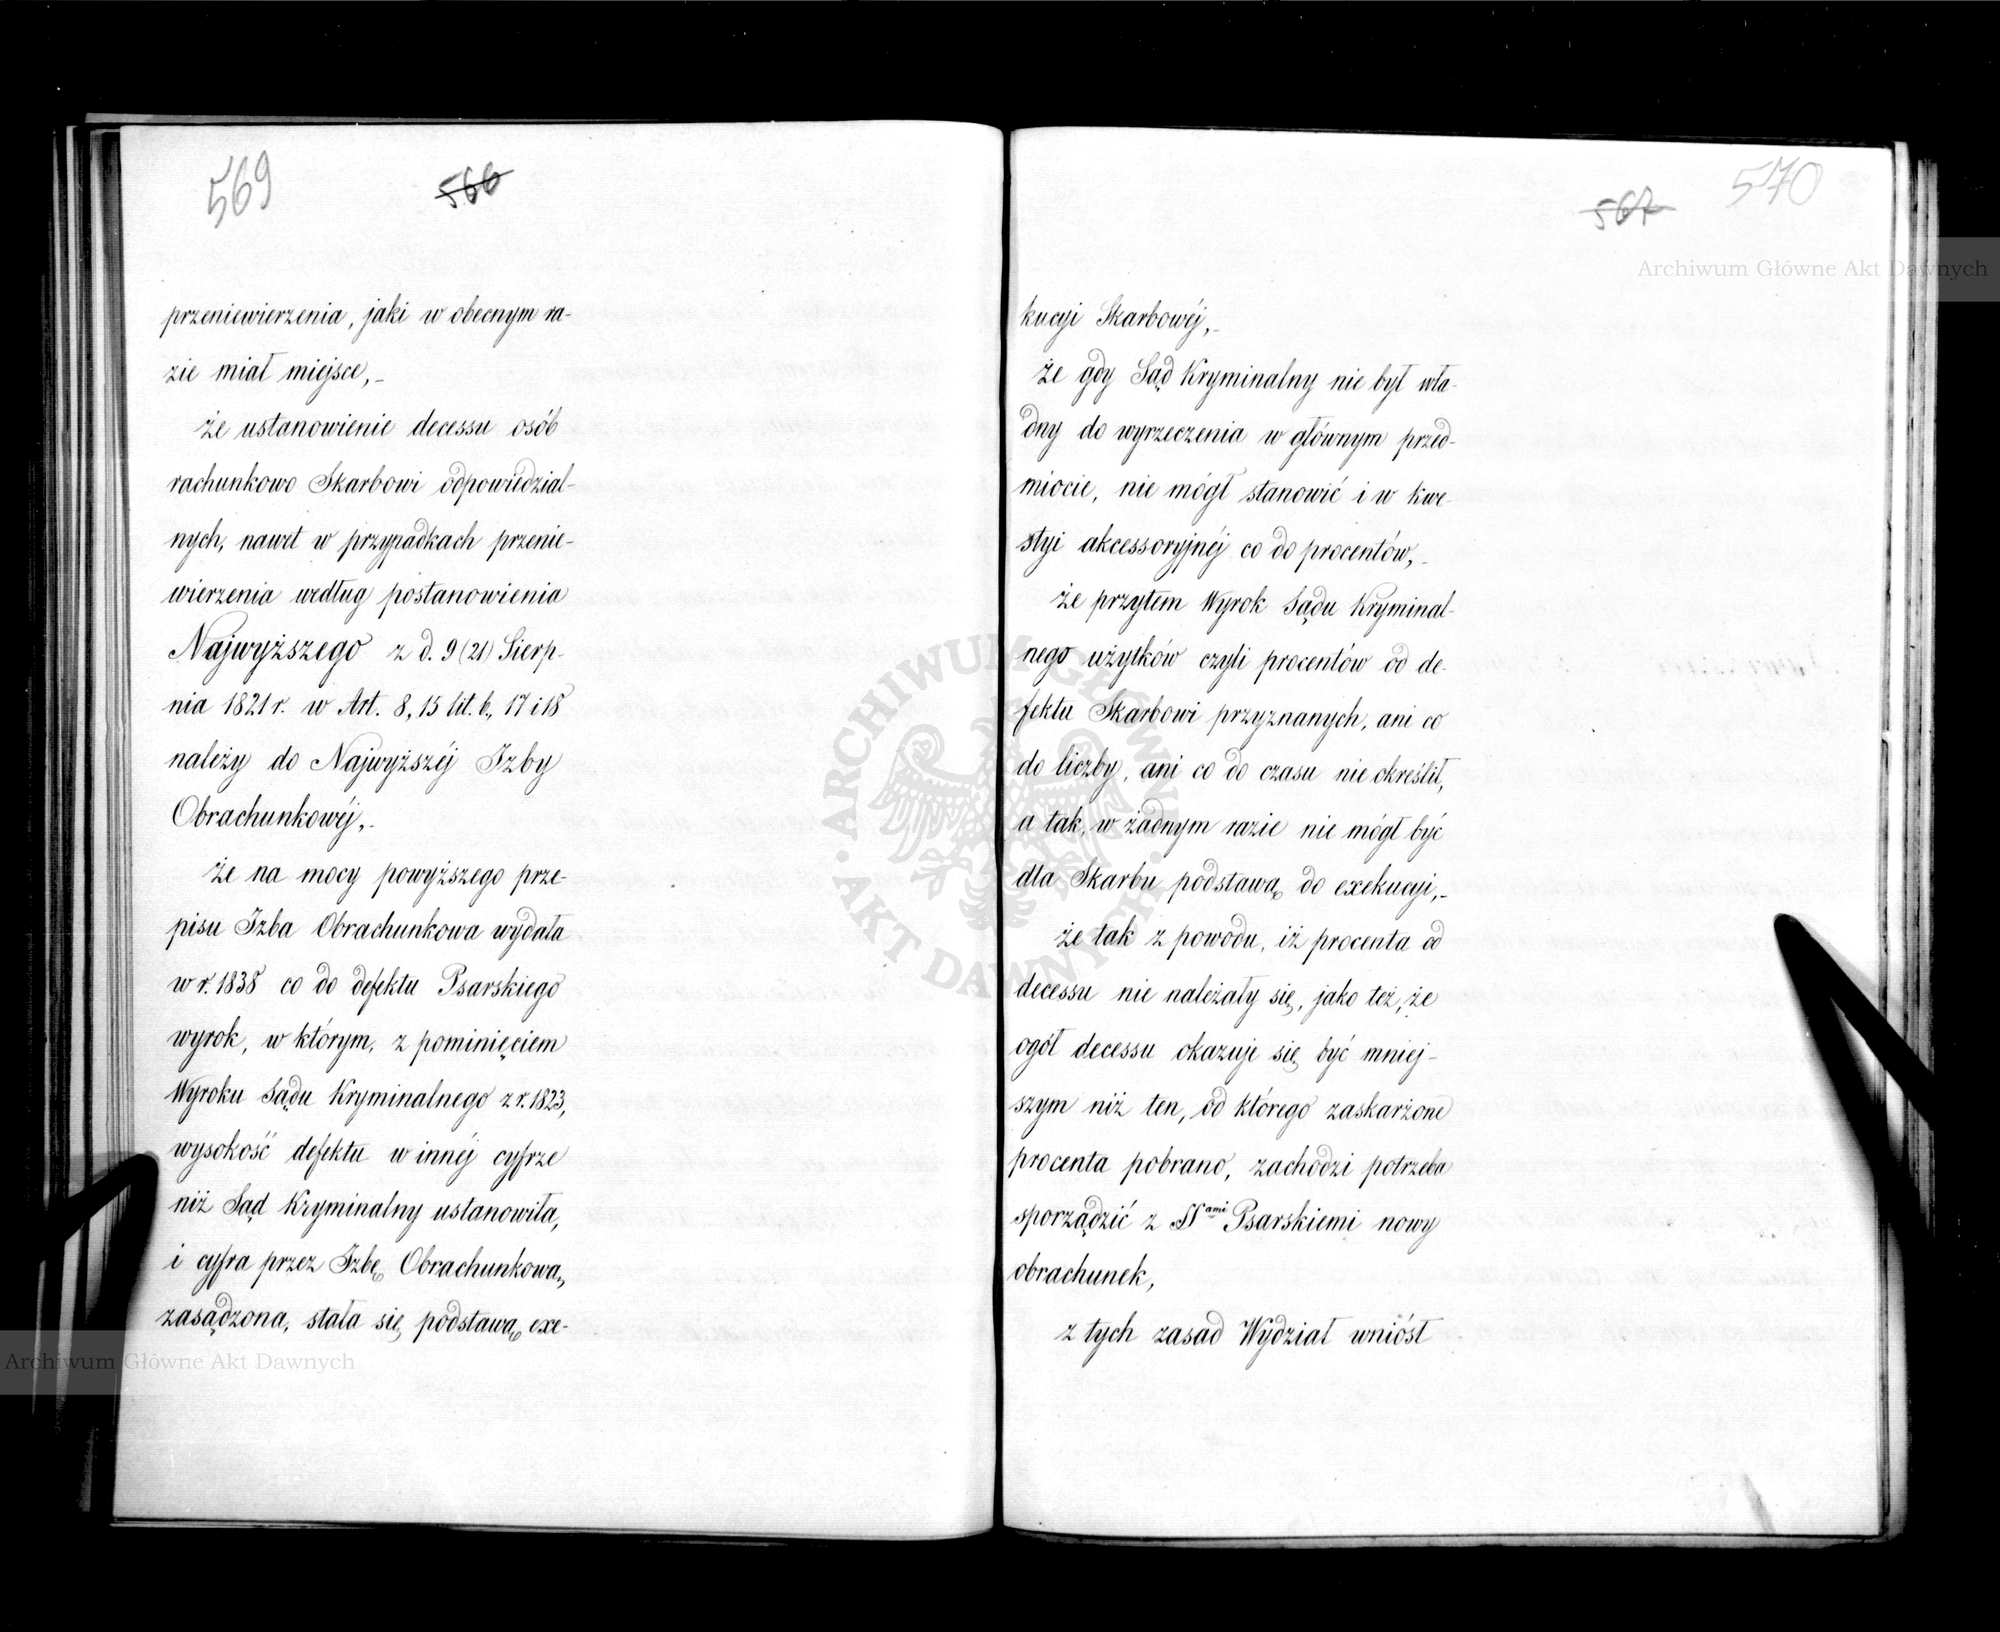 569
566
przeniewierzenia, jaki w obecnym ra-
zie miał miejsce,-
że ustanowienie decessu osób
rachunkowo Skarbowi odpowiedzial-
nych, nawet w przypadkach przenie-
wierzenia według postanowienia
Najwyższego z d. 9 (21) Sierp-
nia 1821 r. w Art. 8, 15 lit. b., 17 i 18
należy do Najwyższéj Izby
Obrachunkowéj,-
że na mocy powyższego prze-
pisu Izba Obrachunkowa wydała
w r. 1838 co do defektu Psarskiego
wyrok, w którym, z pominięciem
Wyroku Sądu Kryminalnego z r. 1823,
wysokość defektu w innéj cyfrze
niż Sąd Kryminalny ustanowiła,
i cyfra przez Izbę Obrachunkową,
zasądzona, stała się podstawą exe-
570
567
kucyi Skarbowéj,-
że gdy Sąd Kryminalny nie był wła-
dny do wyrzeczenia w głównym przed-
miocie, nie mógł stanowić i w kwe-
styi akcessoryjnéj co do procentów,-
że przytem Wyrok Sądu Kryminal-
nego użytków czyli procentów od de-
fektu Skarbowi przyznanych, ani co
do liczby, ani co do czasu nie określił,
a tak, w żadnym razie nie mógł być
dla Skarbu podstawą do exekucyi,-
że tak z powodu, iż procenta od
decessu nie należały się, jako też, że
ogół decessu okazuje się być mniej-
szym niż ten, od którego zaskarżone
procenta pobrano, zachodzi potrzeba
sporządzić z SS<sup>ami</sup> Psarskiemi nowy
obrachunek,
z tych zasad Wydział wniósł
Archiwum Główne Akt Dawnych
ARCHIWUM GŁÓWNE · AKT DAWNYCH ·
Archiwum Główne Akt Dawnych